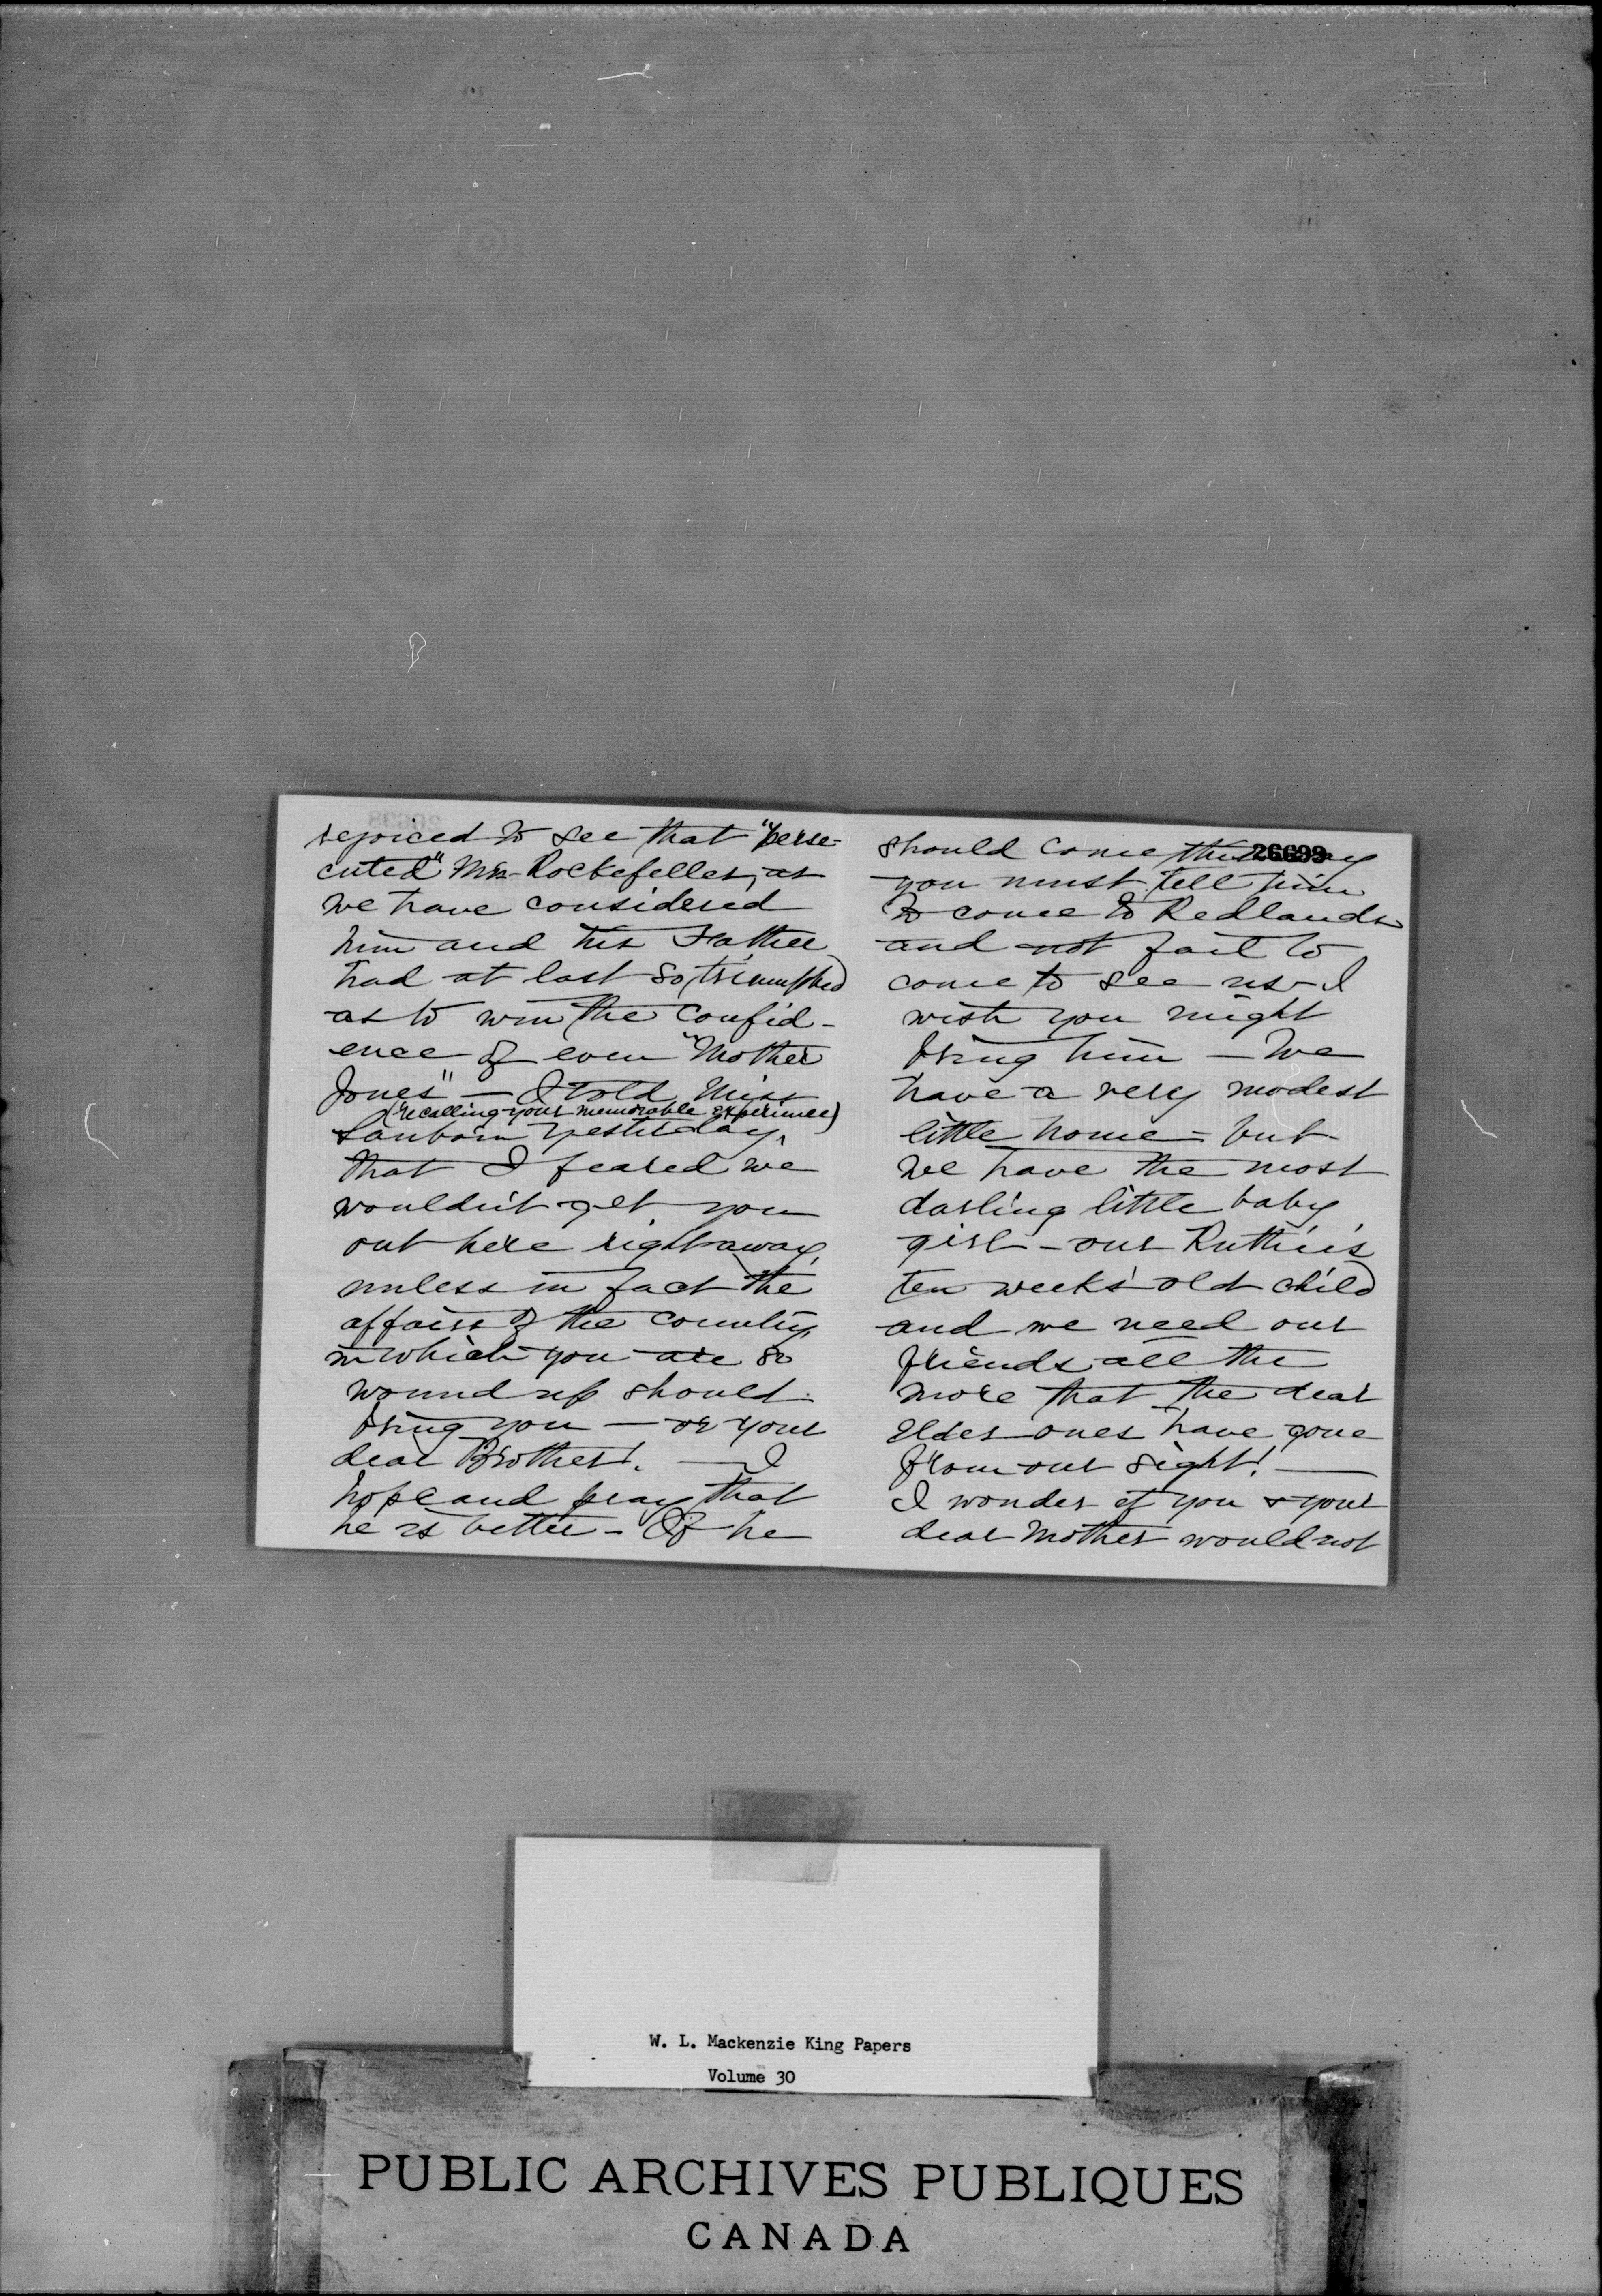 rejoiced to see that "perse-
cuted" Mr. Rockefeller, as
we have considered
him and his Father
had at last so triumphed
as to win the confid-
ence of even "Mother
Jones" — I told Miss
(recalling your memorable experience)
Sanborn yesterday,
that I feared we
wouldn't get you
out here right away,
unless in fact the
affairs of the country
in which you are so
wound up should
bring you — or your
dear Brother. — I
hope and pray that
he is better - If he
26699
should come this way
you must tell him
to come to Redlands
and not fail to
come to see us - I
wish you might
bring him — We
have a very modest
little home - but
we have the most
darling little baby
girl - our Ruthie's
ten weeks' old child
and we need our
friends all the
more that the dear
elder ones have gone
from our sight! —
I wonder if you & your
dear Mother would not
W. L. Mackenzie King Papers
Volume 30
PUBLIC ARCHIVES PUBLIQUES
CANADA